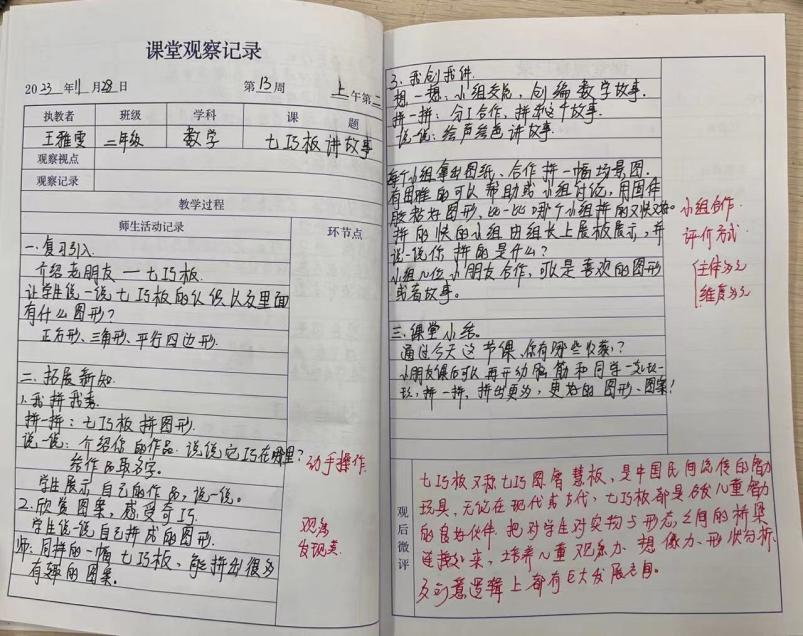 课堂观察记录
2023年11月28日 第13周 上午第二
执教者 班级 学科 课 题
王雅雯 二年级 数学 七巧板讲故事
观察视点
观察记录
教学过程
师生活动记录 环节点
一.复习引入
介绍老朋友一七巧板.
让学生说一说七巧板的认识以及里面
有什么图形?
正方形、三角形、平行四边形.
二、拓展新知
1.我拼我秀
拼一拼:七巧板拼图形.
说一说:介绍你的作品.说说它巧在哪里?
给作品取名字。
动手操作
学生展示自己的作品,说一说。
2.欣赏图案,感受奇巧.
学生说一说自己拼成的图形.
师:同样的一幅七巧板、能拼出很多
有趣的图案。
观察
发现美
3.我创我讲.
想一想:小组交流,创编数学故事.
拼一拼:分工合作,拼我这个故事.
说一说:绘声绘色讲故事.
每个小组拿出图纸、合作拼一幅场景图.
有困难的可以帮助或小组讨论,用固体
胶粘好图形、比一比哪个小组拼的又快又好。
拼的快的小组由组长上展板展示,并
说一说你拼的是什么?
小组几位小朋友合作,可以是喜欢的图形
或者故事。
小组合作.
评价方式
主体多元
维度多元
三.课堂小结。
通过今天这节课、你有哪些收获?
小朋友课后可以再开动脑筋和同学一起玩一
玩,拼一拼,拼出更多,更好的图形、图案!
观后微评
七巧板又称七巧图.智慧板,是中国民间流传的智力
玩具,无论在现代或古代,七巧板都是启发儿童智力
的良好伙伴.把对学生对实物与形态之间的桥梁
连接起来,培养儿童观察力、想像力、形状分析、
及创意逻辑上都有巨大发展空间。